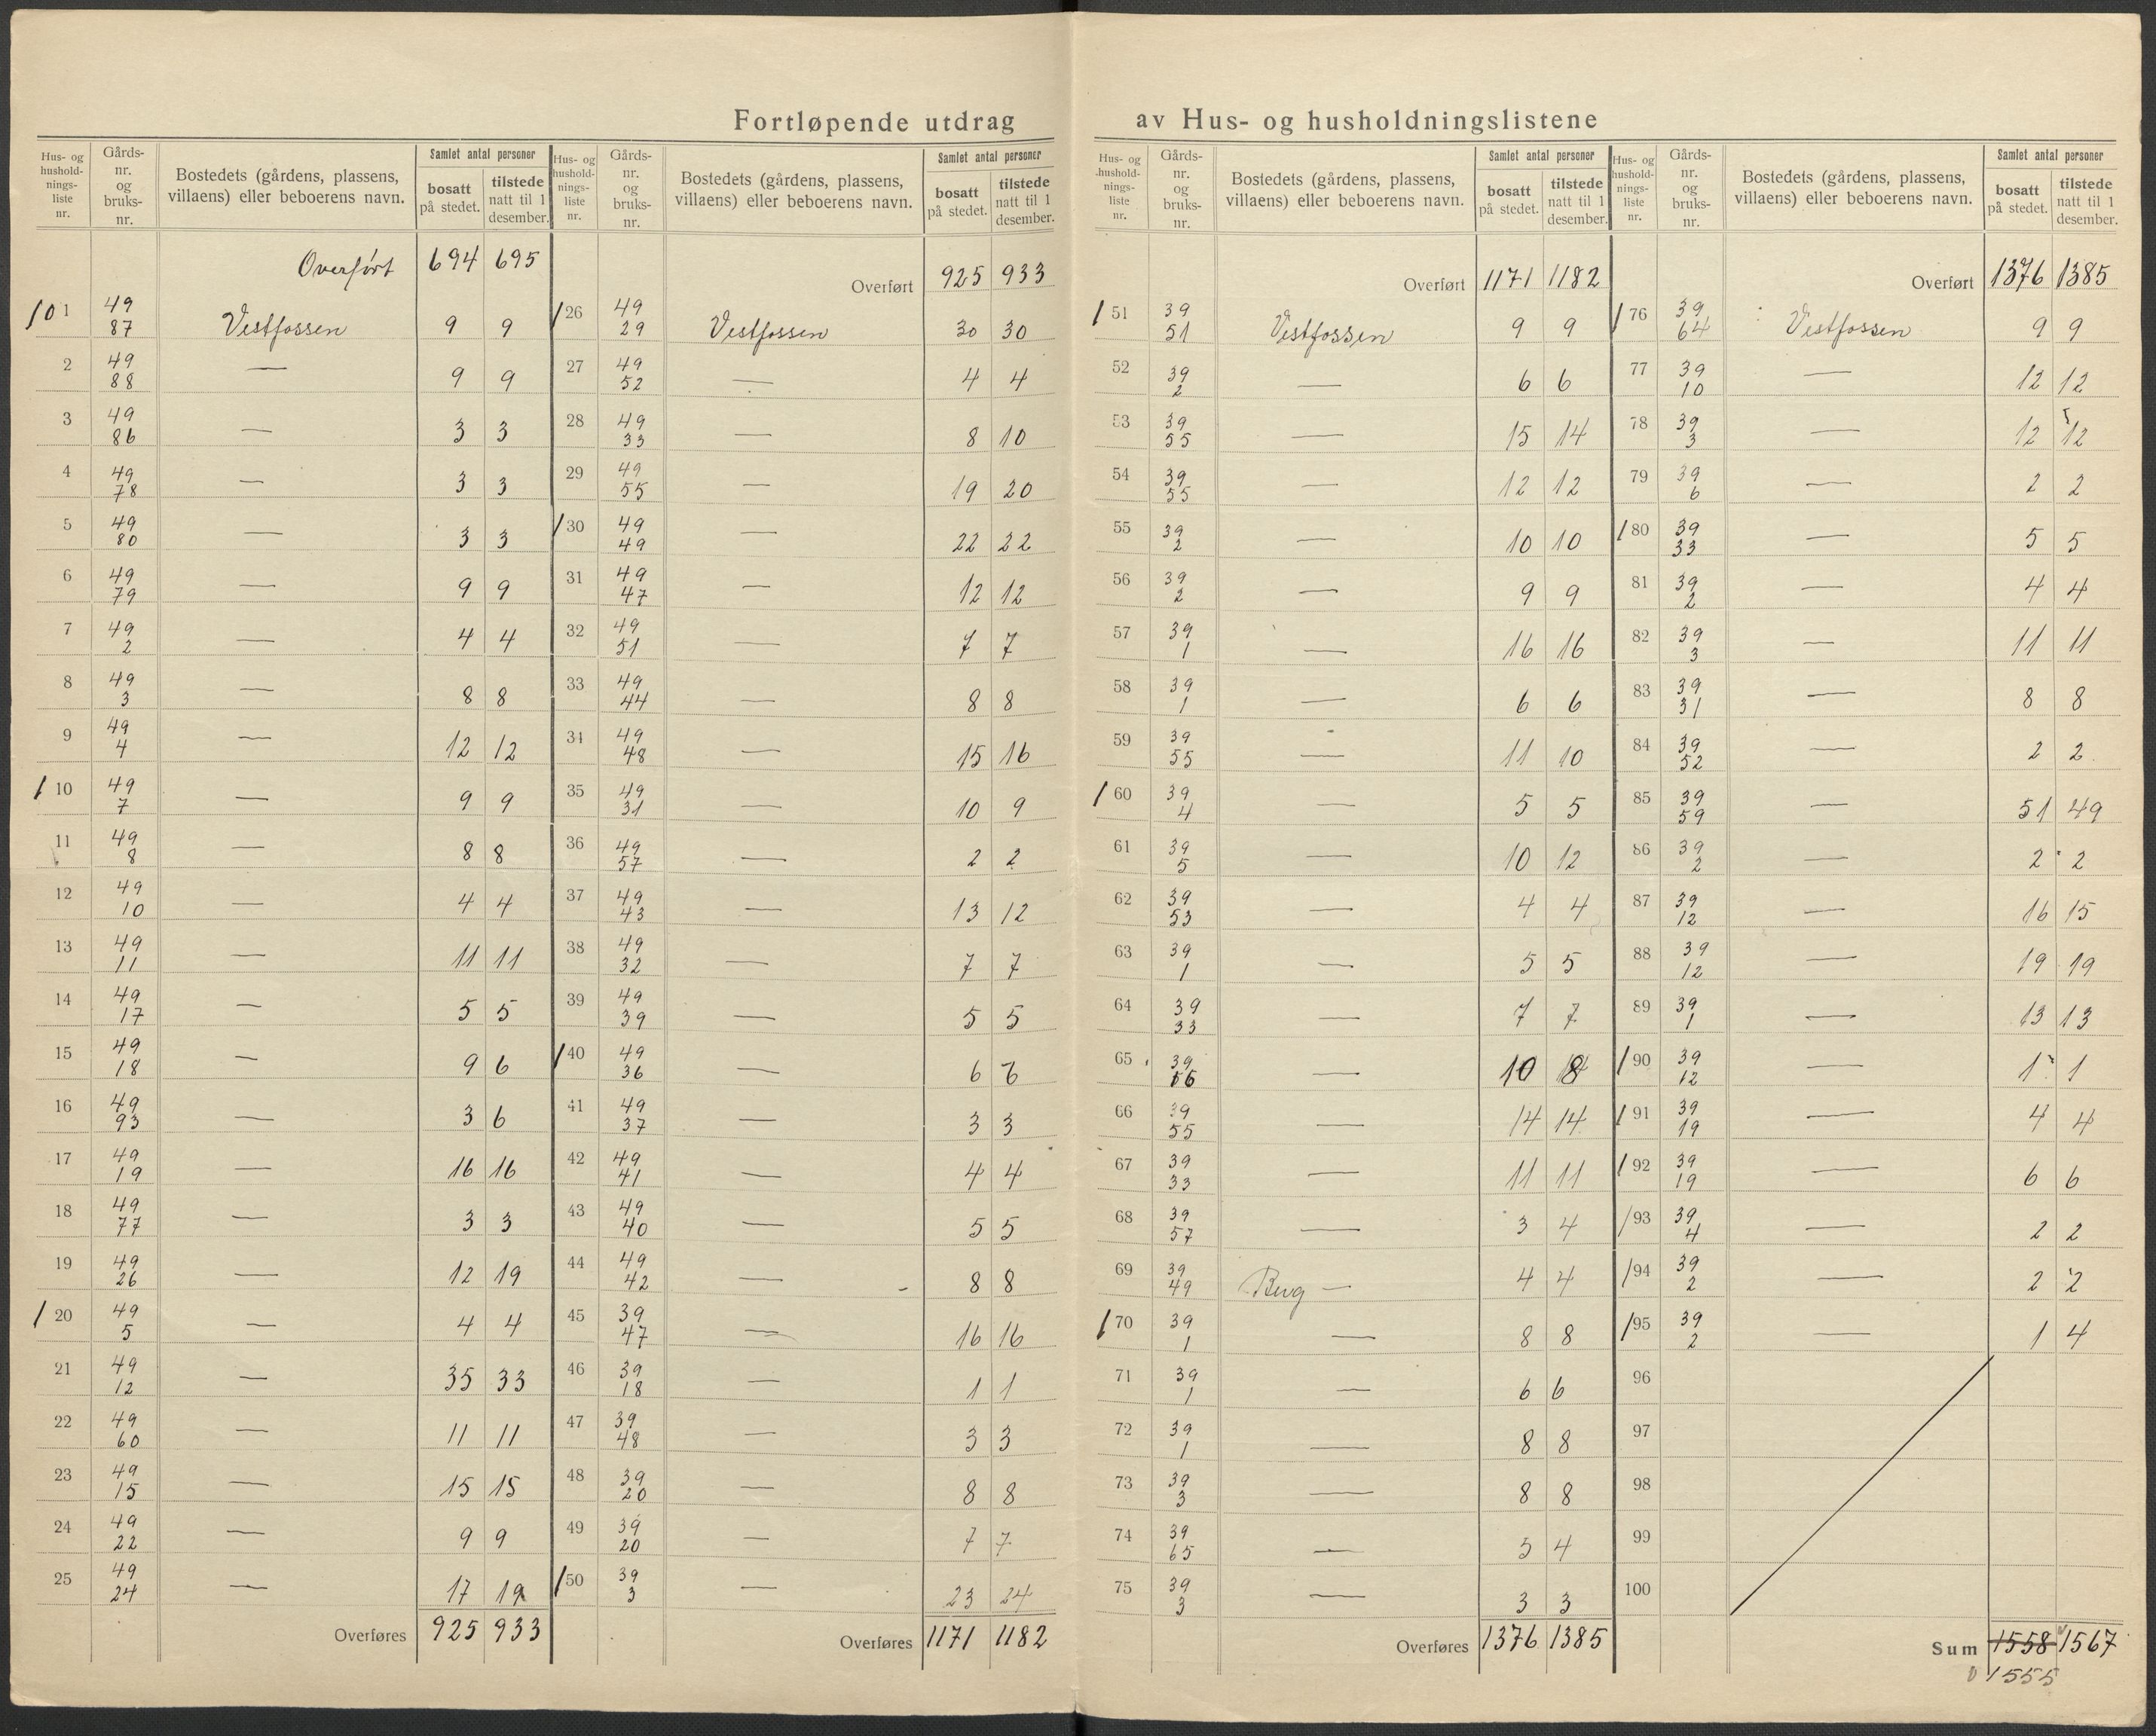 Fortløpende utdrag av Hus- og husholdningslistene
Hus- og husholdnings-liste nr. | Gårds-nr. og bruks-nr. | Bostedets (gårdens, plassens, villaens) eller beboerens navn. | Samlet antal personer: bosatt på stedet. | tilstede natt til 1 desember.
Overført 694 695
101 49 87 Vestfossen 9 9
2 49 88 — 9 9
3 49 86 — 3 3
4 49 78 — 3 3
5 49 80 — 3 3
6 49 79 — 9 9
7 49 2 — 4 4
8 49 3 — 8 8
9 49 4 — 12 12
/10 49 7 — 9 9
11 49 8 — 8 8
12 49 10 — 4 4
13 49 11 — 11 11
14 49 17 — 5 5
15 49 18 — 9 6
16 49 93 — 3 6
17 49 19 — 16 16
18 49 77 — 3 3
19 49 26 — 12 19
/20 49 5 — 4 4
21 49 12 — 35 33
22 49 60 — 11 11
23 49 15 — 15 15
24 49 22 — 9 9
25 49 24 — 17 19
Overføres 925 933
Hus- og husholdnings-liste nr. | Gårds-nr. og bruks-nr. | Bostedets (gårdens, plassens, villaens) eller beboerens navn. | Samlet antal personer: bosatt på stedet. | tilstede natt til 1 desember.
Overført 925 933
/26 49 29 Vestfossen 30 30
27 49 52 — 4 4
28 49 33 — 8 10
29 49 55 — 19 20
/30 49 49 — 22 22
31 49 47 — 12 12
32 49 51 — 7 7
33 49 44 — 8 8
34 49 48 — 15 16
35 49 31 — 10 9
36 49 57 — 2 2
37 49 43 — 13 12
38 49 32 — 7 7
39 49 39 — 5 5
/40 49 36 — 6 6
41 49 37 — 3 3
42 49 41 — 4 4
43 49 40 — 5 5
44 49 42 — 8 8
45 39 47 — 16 16
46 39 18 — 1 1
47 39 48 — 3 3
48 39 20 — 8 8
49 39 20 — 7 7
/50 39 3 — 23 24
Overføres 1171 1182
Hus- og husholdnings-liste nr. | Gårds-nr. og bruks-nr. | Bostedets (gårdens, plassens, villaens) eller beboerens navn. | Samlet antal personer: bosatt på stedet. | tilstede natt til 1 desember.
Overført 1171 1182
/51 39 51 Vestfossen 9 9
52 39 2 — 6 6
53 39 55 — 15 14
54 39 55 — 12 12
55 39 2 — 10 10
56 39 2 — 9 9
57 39 1 — 16 16
58 39 1 — 6 6
59 39 55 — 11 10
/60 39 4 — 5 5
61 39 5 — 10 12
62 39 53 — 4 4
63 39 1 — 5 5
64 39 33 — 7 7
65 39 56 — 10 8
66 39 55 — 14 14
67 39 33 — 11 11
68 39 57 — 3 4
69 39 49 Berg — 4 4
/70 39 1 — 8 8
71 39 1 — 6 6
72 39 1 — 8 8
73 39 3 — 8 8
74 39 65 — 5 4
75 39 3 — 3 3
Overføres 1376 1385
Hus- og husholdnings-liste nr. | Gårds-nr. og bruks-nr. | Bostedets (gårdens, plassens, villaens) eller beboerens navn. | Samlet antal personer: bosatt på stedet. | tilstede natt til 1 desember.
Overført 1376 1385
/76 39 64 Vestfossen 9 9
77 39 10 — 12 12
78 39 3 — 12 12
79 39 6 — 2 2
/80 39 33 — 5 5
81 39 2 — 4 4
82 39 3 — 11 11
83 39 31 — 8 8
84 39 52 — 2 2
85 39 59 — 51 49
86 39 2 — 2 2
87 39 12 — 16 15
88 39 12 — 19 19
89 39 1 — 13 13
/90 39 12 — 1 1
/91 39 19 — 4 4
/92 39 19 — 6 6
/93 39 4 — 2 2
/94 39 2 — 2 2
/95 39 2 — 1 4
96
97
98
99
100
Sum 1558 1567
1555